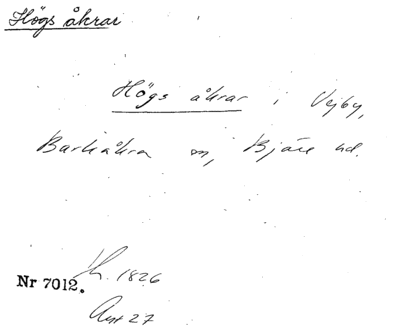 Högs åkrar
Högs åkrar i Vejby,
Barkåkra sn, Bjäre hd.
Nr 7012. 1826
27